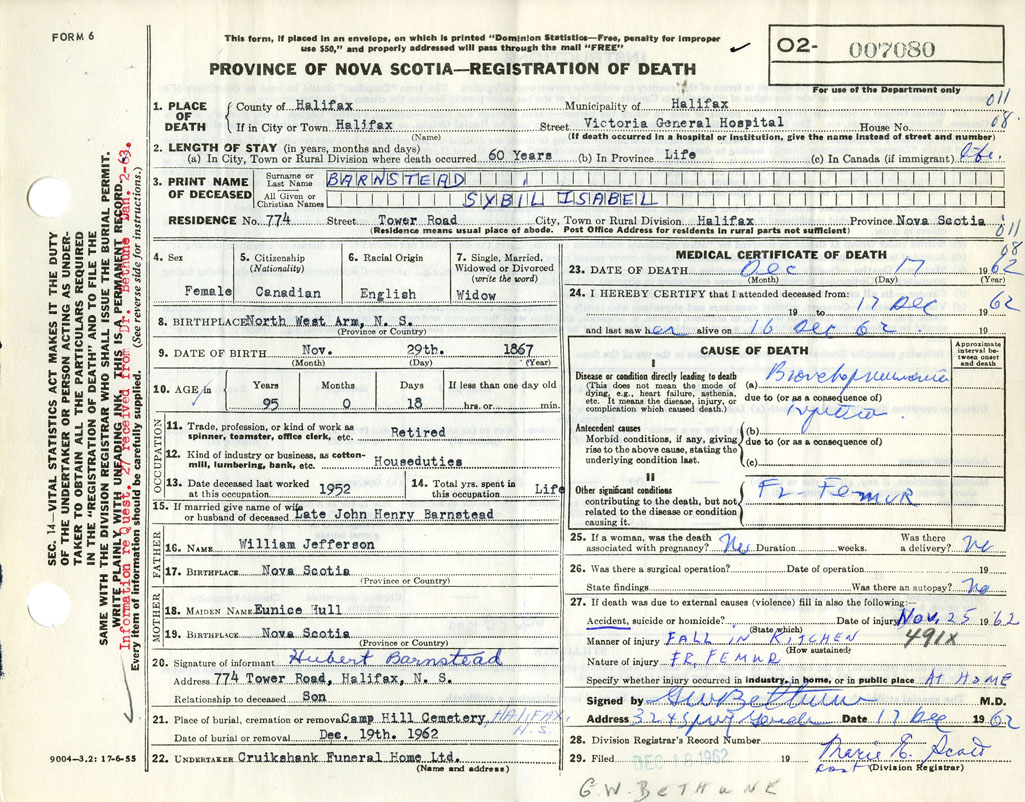 FORM 6
This form, if placed in an envelope, on which is printed "Dominion Statistics—Free, penalty for improper
use $50," and properly addressed will pass through the mail "FREE"
PROVINCE OF NOVA SCOTIA—REGISTRATION OF DEATH
02- 007080
For use of the Department only
1. PLACE OF DEATH County of Halifax Municipality of Halifax 011
If in City or Town Halifax Street Victoria General Hospital House No. 08.
(Name) (If death occurred in a hospital or institution, give the name instead of street and number)
2. LENGTH OF STAY (in years, months and days)
(a) In City, Town or Rural Division where death occurred 60 Years (b) In Province Life (c) In Canada (if immigrant) life.
3. PRINT NAME OF DECEASED Surname or Last Name BARNSTEAD
All Given or Christian Names SYBIL ISABEL
RESIDENCE No. 774 Street Tower Road City, Town or Rural Division Halifax Province Nova Scotia
(Residence means usual place of abode. Post Office Address for residents in rural parts not sufficient)
011
08
4. Sex Female
5. Citizenship (Nationality) Canadian
6. Racial Origin English
7. Single, Married, Widowed or Divorced (write the word) Widow
8. BIRTHPLACE North West Arm, N. S.
(Province or Country)
9. DATE OF BIRTH Nov. 29th. 1867
(Month) (Day) (Year)
10. AGE in Years 95 Months 0 Days 18 If less than one day old hrs. or min.
OCCUPATION
11. Trade, profession, or kind of work as spinner, teamster, office clerk, etc. Retired
12. Kind of industry or business, as cotton-mill, lumbering, bank, etc. Houseduties
13. Date deceased last worked at this occupation 1952
14. Total yrs. spent in this occupation Life
15. If married give name of wife or husband of deceased Late John Henry Barnstead
FATHER
16. NAME William Jefferson
17. BIRTHPLACE Nova Scotia
(Province or Country)
MOTHER
18. MAIDEN NAME Eunice Hull
19. BIRTHPLACE Nova Scotia
(Province or Country)
20. Signature of informant Hubert Barnstead
Address 774 Tower Road, Halifax, N. S.
Relationship to deceased Son
21. Place of burial, cremation or removal Camp Hill Cemetery, HALIFAX, N.S.
Date of burial or removal Dec. 19th. 1962
22. UNDERTAKER Cruikshank Funeral Home Ltd.
(Name and address)
MEDICAL CERTIFICATE OF DEATH
23. DATE OF DEATH Dec 17 1962
(Month) (Day) (Year)
24. I HEREBY CERTIFY that I attended deceased from: 17 Dec 62
19 to 19
and last saw her alive on 16 Dec 62 19
CAUSE OF DEATH
Approximate interval between onset and death
I
Disease or condition directly leading to death
(This does not mean the mode of dying, e.g., heart failure, asthenia, etc. It means the disease, injury, or complication which caused death.)
(a) Bronchopneumonia
due to (or as a consequence of)
Antecedent causes
Morbid conditions, if any, giving rise to the above cause, stating the underlying condition last.
(b)
due to (or as a consequence of)
(c)
II
Other significant conditions
contributing to the death, but not related to the disease or condition causing it.
Fr FEMUR
25. If a woman, was the death associated with pregnancy? Duration weeks. Was there a delivery? No
26. Was there a surgical operation? Date of operation 19
State findings Was there an autopsy? No
27. If death was due to external causes (violence) fill in also the following:—
Accident, suicide or homicide? Date of injury Nov. 25 1962
(State which)
Manner of injury FALL IN KITCHEN 491X
(How sustained)
Nature of injury FR. FEMUR
Specify whether injury occurred in industry, in home, or in public place AT HOME
Signed by G W Bethune M.D.
Address 324 Spring Garden Date 17 Dec 1962
28. Division Registrar's Record Number
29. Filed DEC 18 1962 19 Marie E. Scott
(Division Registrar)
G.W. BETHUNE
SEC. 14—VITAL STATISTICS ACT MAKES IT THE DUTY
OF THE UNDERTAKER OR PERSON ACTING AS UNDER-
TAKER TO OBTAIN ALL THE PARTICULARS REQUIRED
IN THE "REGISTRATION OF DEATH" AND TO FILE THE
SAME WITH THE DIVISION REGISTRAR WHO SHALL ISSUE THE BURIAL PERMIT.
WRITE PLAINLY WITH UNFADING INK. THIS IS A PERMANENT RECORD.
Information re Quest. 27 received from Dr. Bethune Jan. 2-63.
Every item of information should be carefully supplied. (See reverse side for instructions.)
9004—3.2: 17-6-55